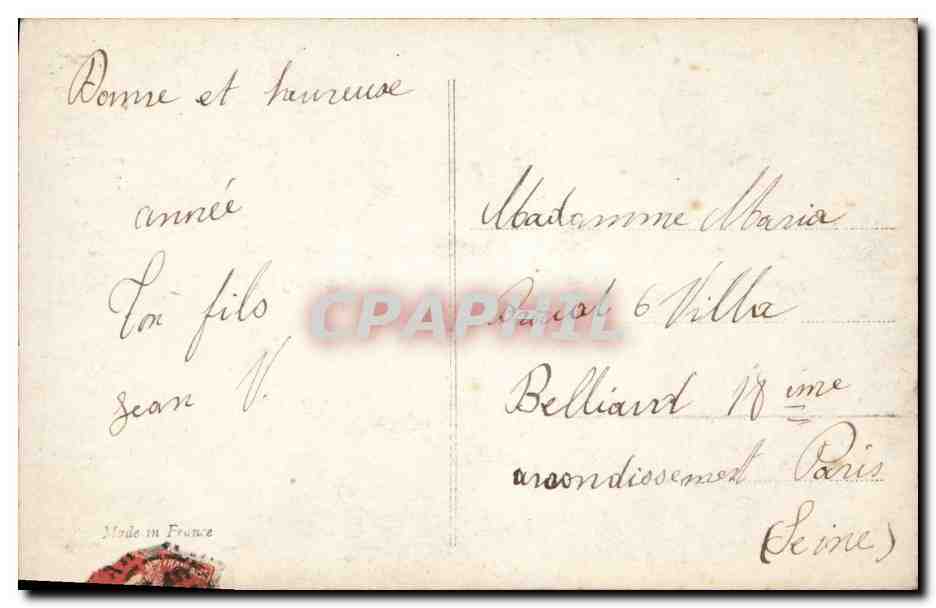 Bonne et heureuse
année
Ton fils
Jean V.
Made in France
Madamme Maria
6 Villa
Belliard 18 ème
arrondissement Paris
(Seine)
CPAPHIL